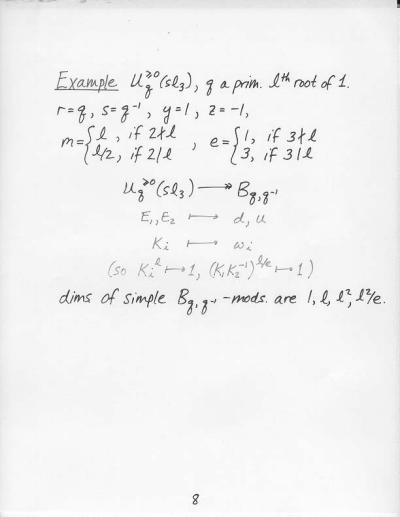 Example U_q^{≥0}(sl_3), q a prim. l^{th} root of 1.
r=q, s=q^{-1}, y=1, z=-1,
m={l, if 2∤l; l/2, if 2|l , e={1, if 3∤l; 3, if 3|l
U_q^{≥0}(sl_3) ↠ B_{q,q^{-1}}
E_1, E_2 ⟼ d, u
K_i ⟼ w_i
(so K_i^l ⟼ 1, (K_1K_2^{-1})^{l/e} ⟼ 1)
dims of simple B_{q,q^{-1}}-mods. are 1, l, l^2, l^2/e.
8